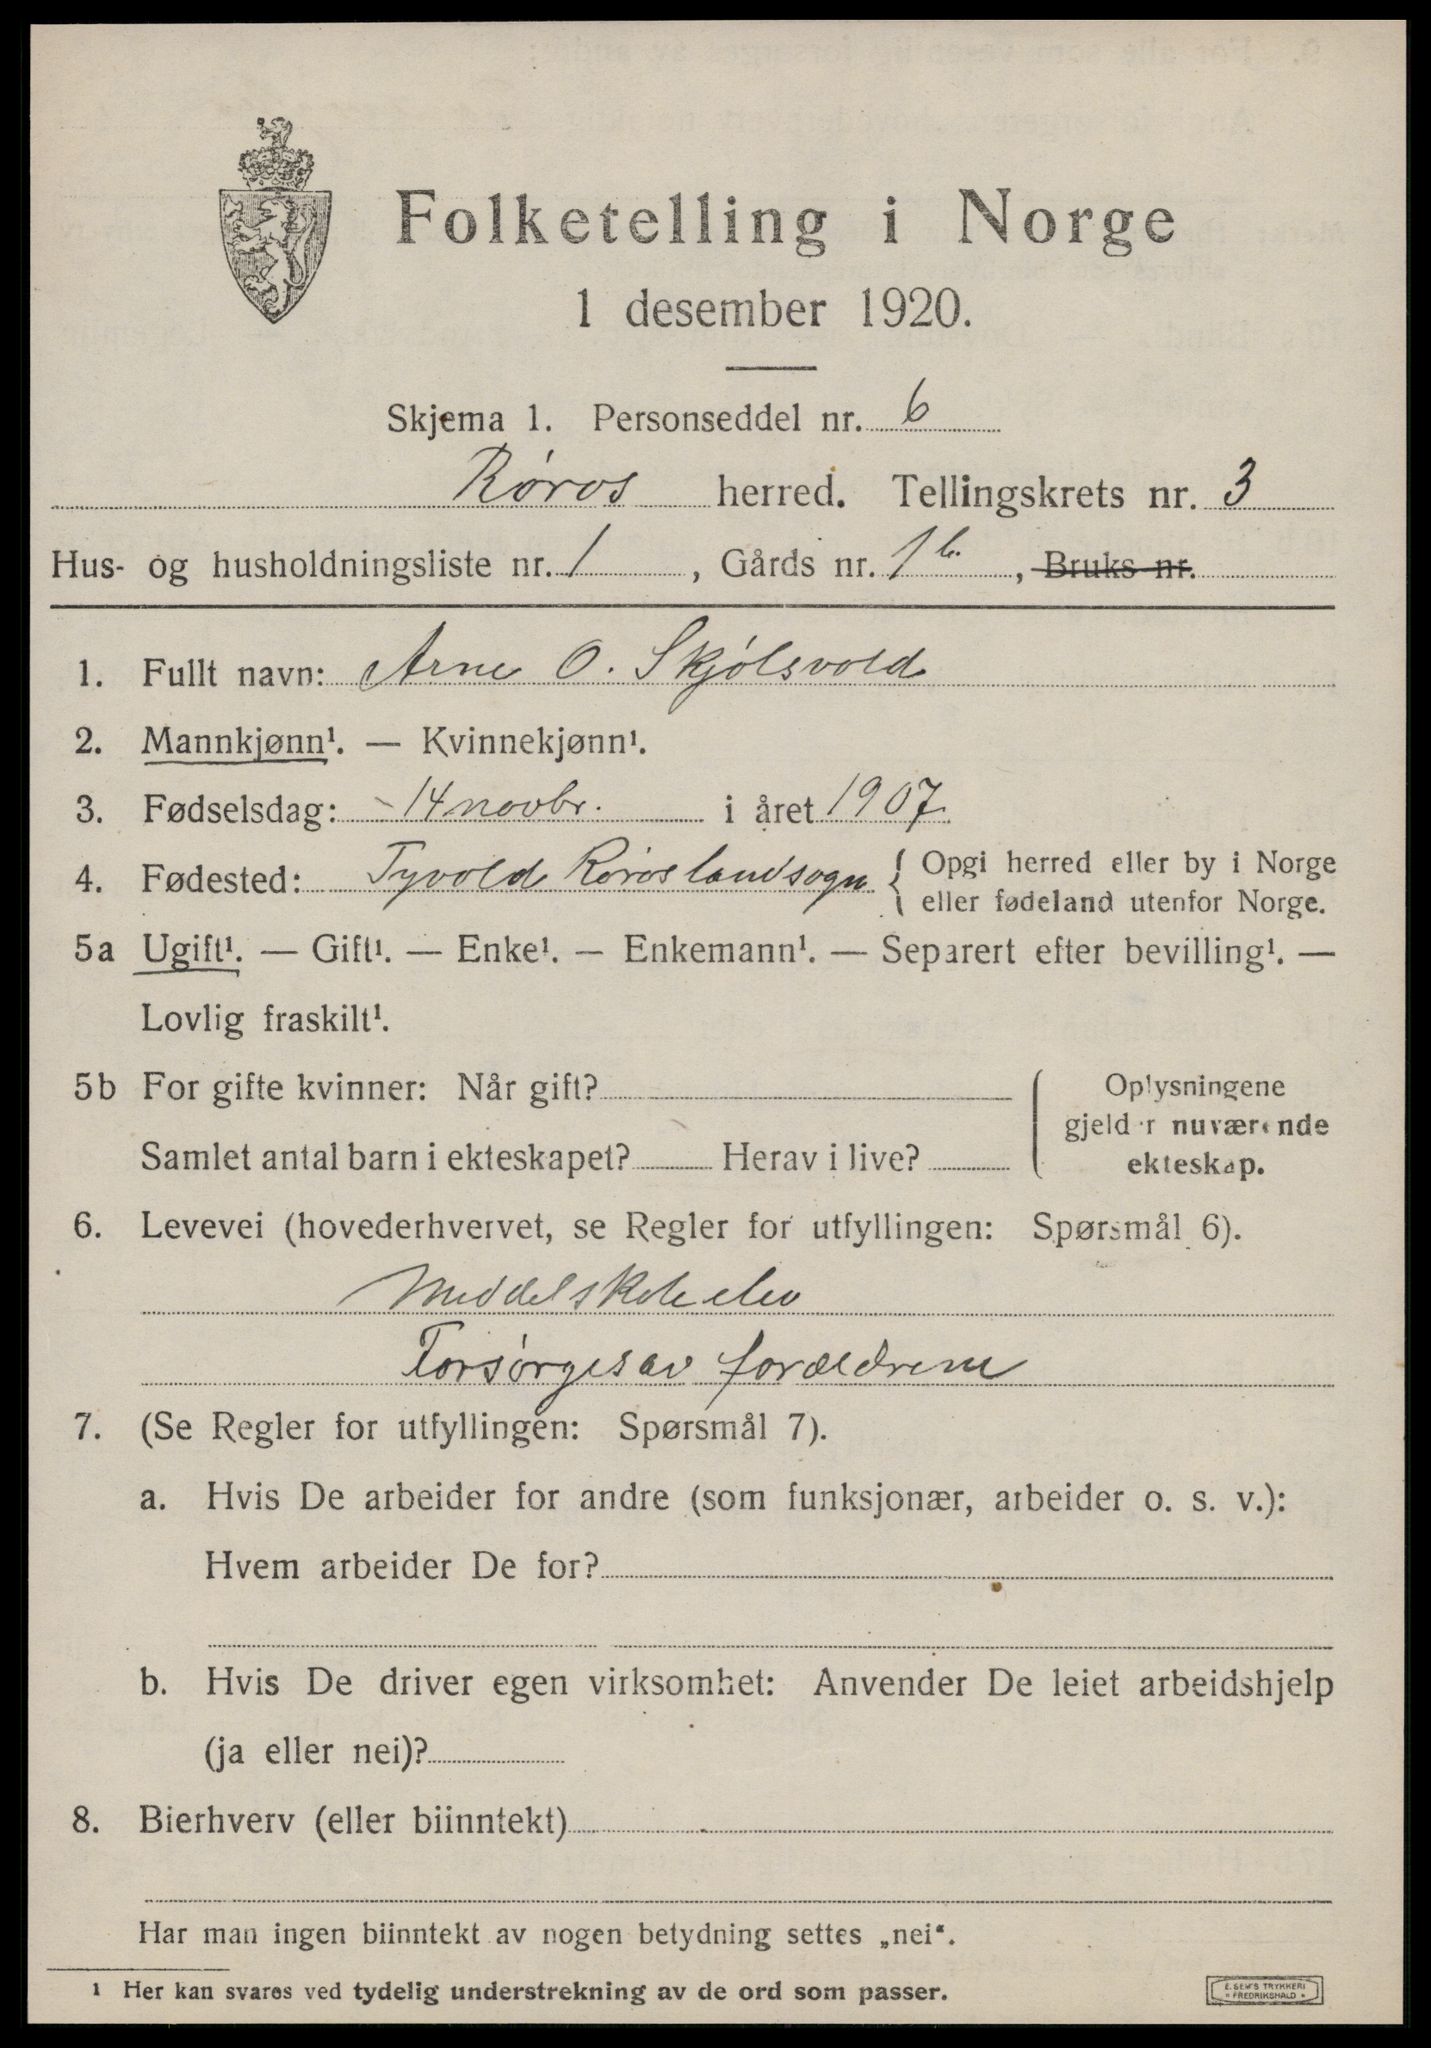 Folketelling i Norge
1 desember 1920.
Skjema 1. Personseddel nr. 6
Røros herred. Tellingskrets nr. 3
Hus- og husholdningsliste nr. 1, Gårds nr. 1 b., Bruks nr.
1. Fullt navn: Arne O. Skjølsvold
2. Mannkjønn¹. — Kvinnekjønn¹.
3. Fødselsdag: 14 novbr. i året 1907
4. Fødested: Tyvold Røros landsogn { Opgi herred eller by i Norge
eller fødeland utenfor Norge.
5a Ugift¹. — Gift¹. — Enke¹. — Enkemann¹. — Separert efter bevilling¹. —
Lovlig fraskilt¹.
5b For gifte kvinner: Når gift?
Samlet antal barn i ekteskapet? Herav i live?
Oplysningene
gjelder nuværende
ekteskap.
6. Levevei (hovederhvervet, se Regler for utfyllingen: Spørsmål 6).
Middelskoleelev
Forsørges av forældrene
7. (Se Regler for utfyllingen: Spørsmål 7).
a. Hvis De arbeider for andre (som funksjonær, arbeider o. s. v.):
Hvem arbeider De for?
b. Hvis De driver egen virksomhet: Anvender De leiet arbeidshjelp
(ja eller nei)?
8. Bierhverv (eller biinntekt)
Har man ingen biinntekt av nogen betydning settes „nei“.
1 Her kan svares ved tydelig understrekning av de ord som passer.
E. SEM'S TRYKKERI
* FREDRIKSHALD *